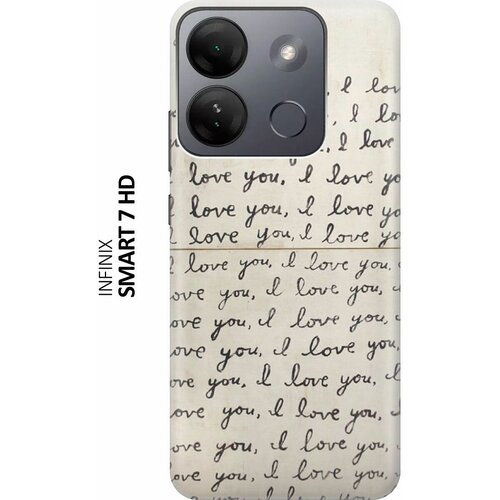 INFINIX
SMART 7 HD
I lov
, I lov
, I love
love you, I love yo
I love you, I love yo
I love you, I love yo
I love you, I love you,
ove you, I love you, I
ove you, I love you, I
ove you, I love you, I
ove you, I love you, I
ove you, I love you, I
ove you, I love you,
love you, I love you, I
you, I love you, I